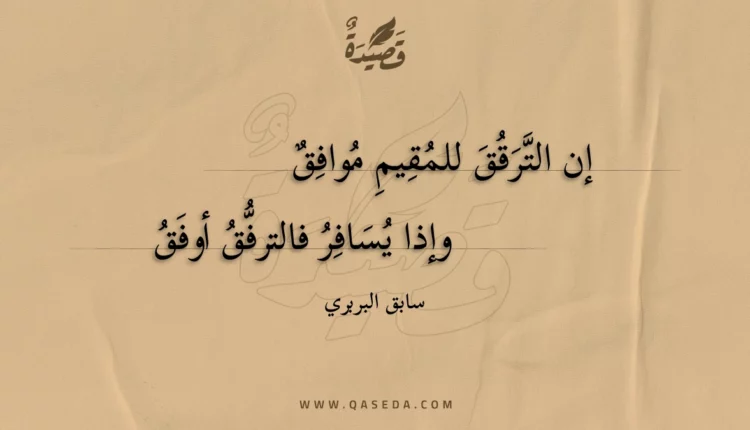 قَصِيدَةٌ
إن التَّرَقُقَ للمُقِيمِ مُوافِقٌ
وإذا يُسَافِرُ فالترفُّقُ أوفَقُ
سابق البربري
WWW.QASEDA.COM